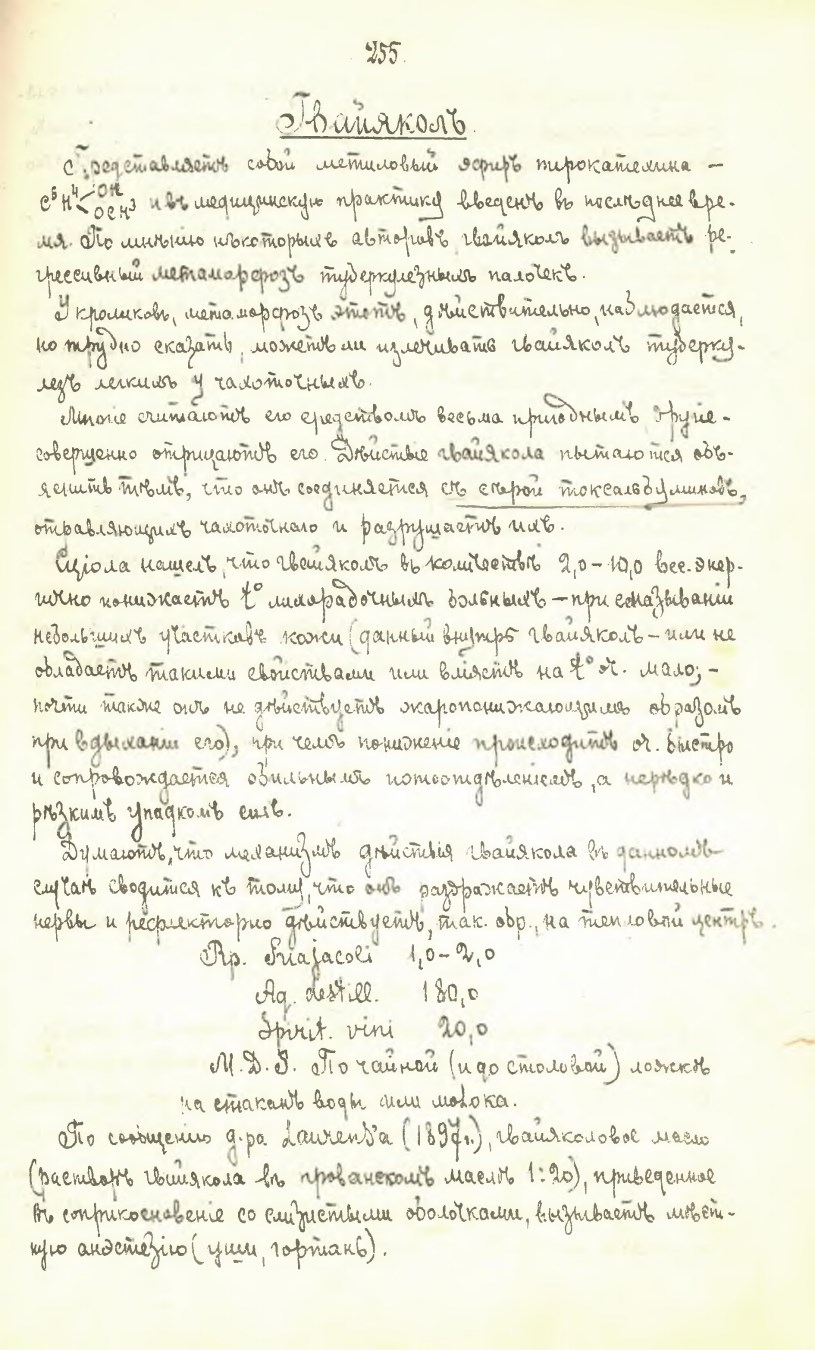 255.
Гвайяколъ.
Представляетъ собой метиловый эфиръ пирокатехина –
C⁶H⁴<OH OCH³ и въ медицинскую практику введенъ въ послѣднее вре-
мя. По мнѣнію нѣкоторыхъ авторовъ гвайяколъ вызываетъ ре-
грессивный метаморфозъ туберкулезныхъ палочекъ.
У кроликовъ, метаморфозъ этотъ, дѣйствительно, наблюдается,
но трудно сказать, можетъ ли излечивать гвайяколъ туберку-
лезъ легкихъ у чахоточныхъ.
Многіе считаютъ его средствомъ весьма пригоднымъ другіе –
совершенно отрицаютъ его. Дѣйствіе гвайякола пытаются объ-
яснить тѣмъ, что онъ соединяется съ сѣрой токсальбуминовъ,
отравляющихъ чахоточнаго и разрушаетъ ихъ.
Сціола нашелъ, что гвайяколъ въ количествѣ 2,0–10,0 вес. энер-
гично понижаетъ t° лихорадочнымъ больнымъ – при смазываніи
небольшихъ участковъ кожи (данный внутрь гвайяколъ – или не
обладаетъ такими свойствами или вліяетъ на t° оч. мало; –
почти также онъ не дѣйствуетъ жаропонижающимъ образомъ
при вдыханіи его), при чемъ пониженіе происходитъ оч. быстро
и сопровождается обильнымъ потоотдѣленіемъ, а нерѣдко и
рѣзкимъ упадкомъ силъ.
Думаютъ, что механизмъ дѣйствія гвайякола въ данномъ
случаѣ сводится къ тому, что онъ раздражаетъ чувствительные
нервы и рефлекторно дѣйствуетъ, так. обр., на тепловой центръ.
Rp. Guajacoli 1,0–2,0
Aq. destill. 180,0
Spirit. vini 20,0
M. D. S. По чайной (и до столовой) ложкѣ
на стаканъ воды или молока.
По сообщенію д-ра Laurens'a (1897 г.), гвайяколовое масло
(растворъ гвайякола въ прованскомъ маслѣ 1:20), приведенное
въ соприкосновеніе со слизистыми оболочками, вызываетъ мѣст-
ную анэстезію (уши, гортань).